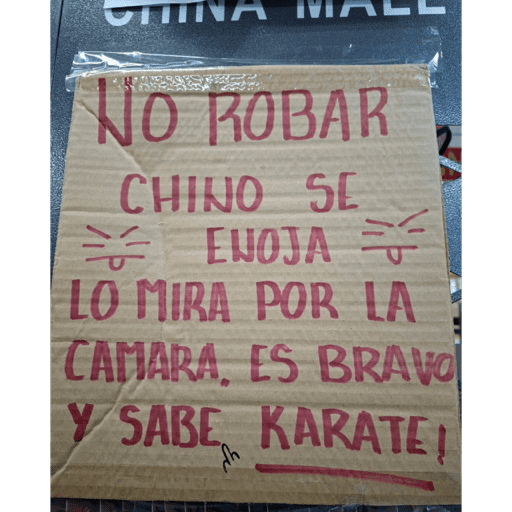 CHINA MALL
NO ROBAR
CHINO SE
ENOJA
LO MIRA POR LA
CAMARA, ES BRAVO
Y SABE KARATE!